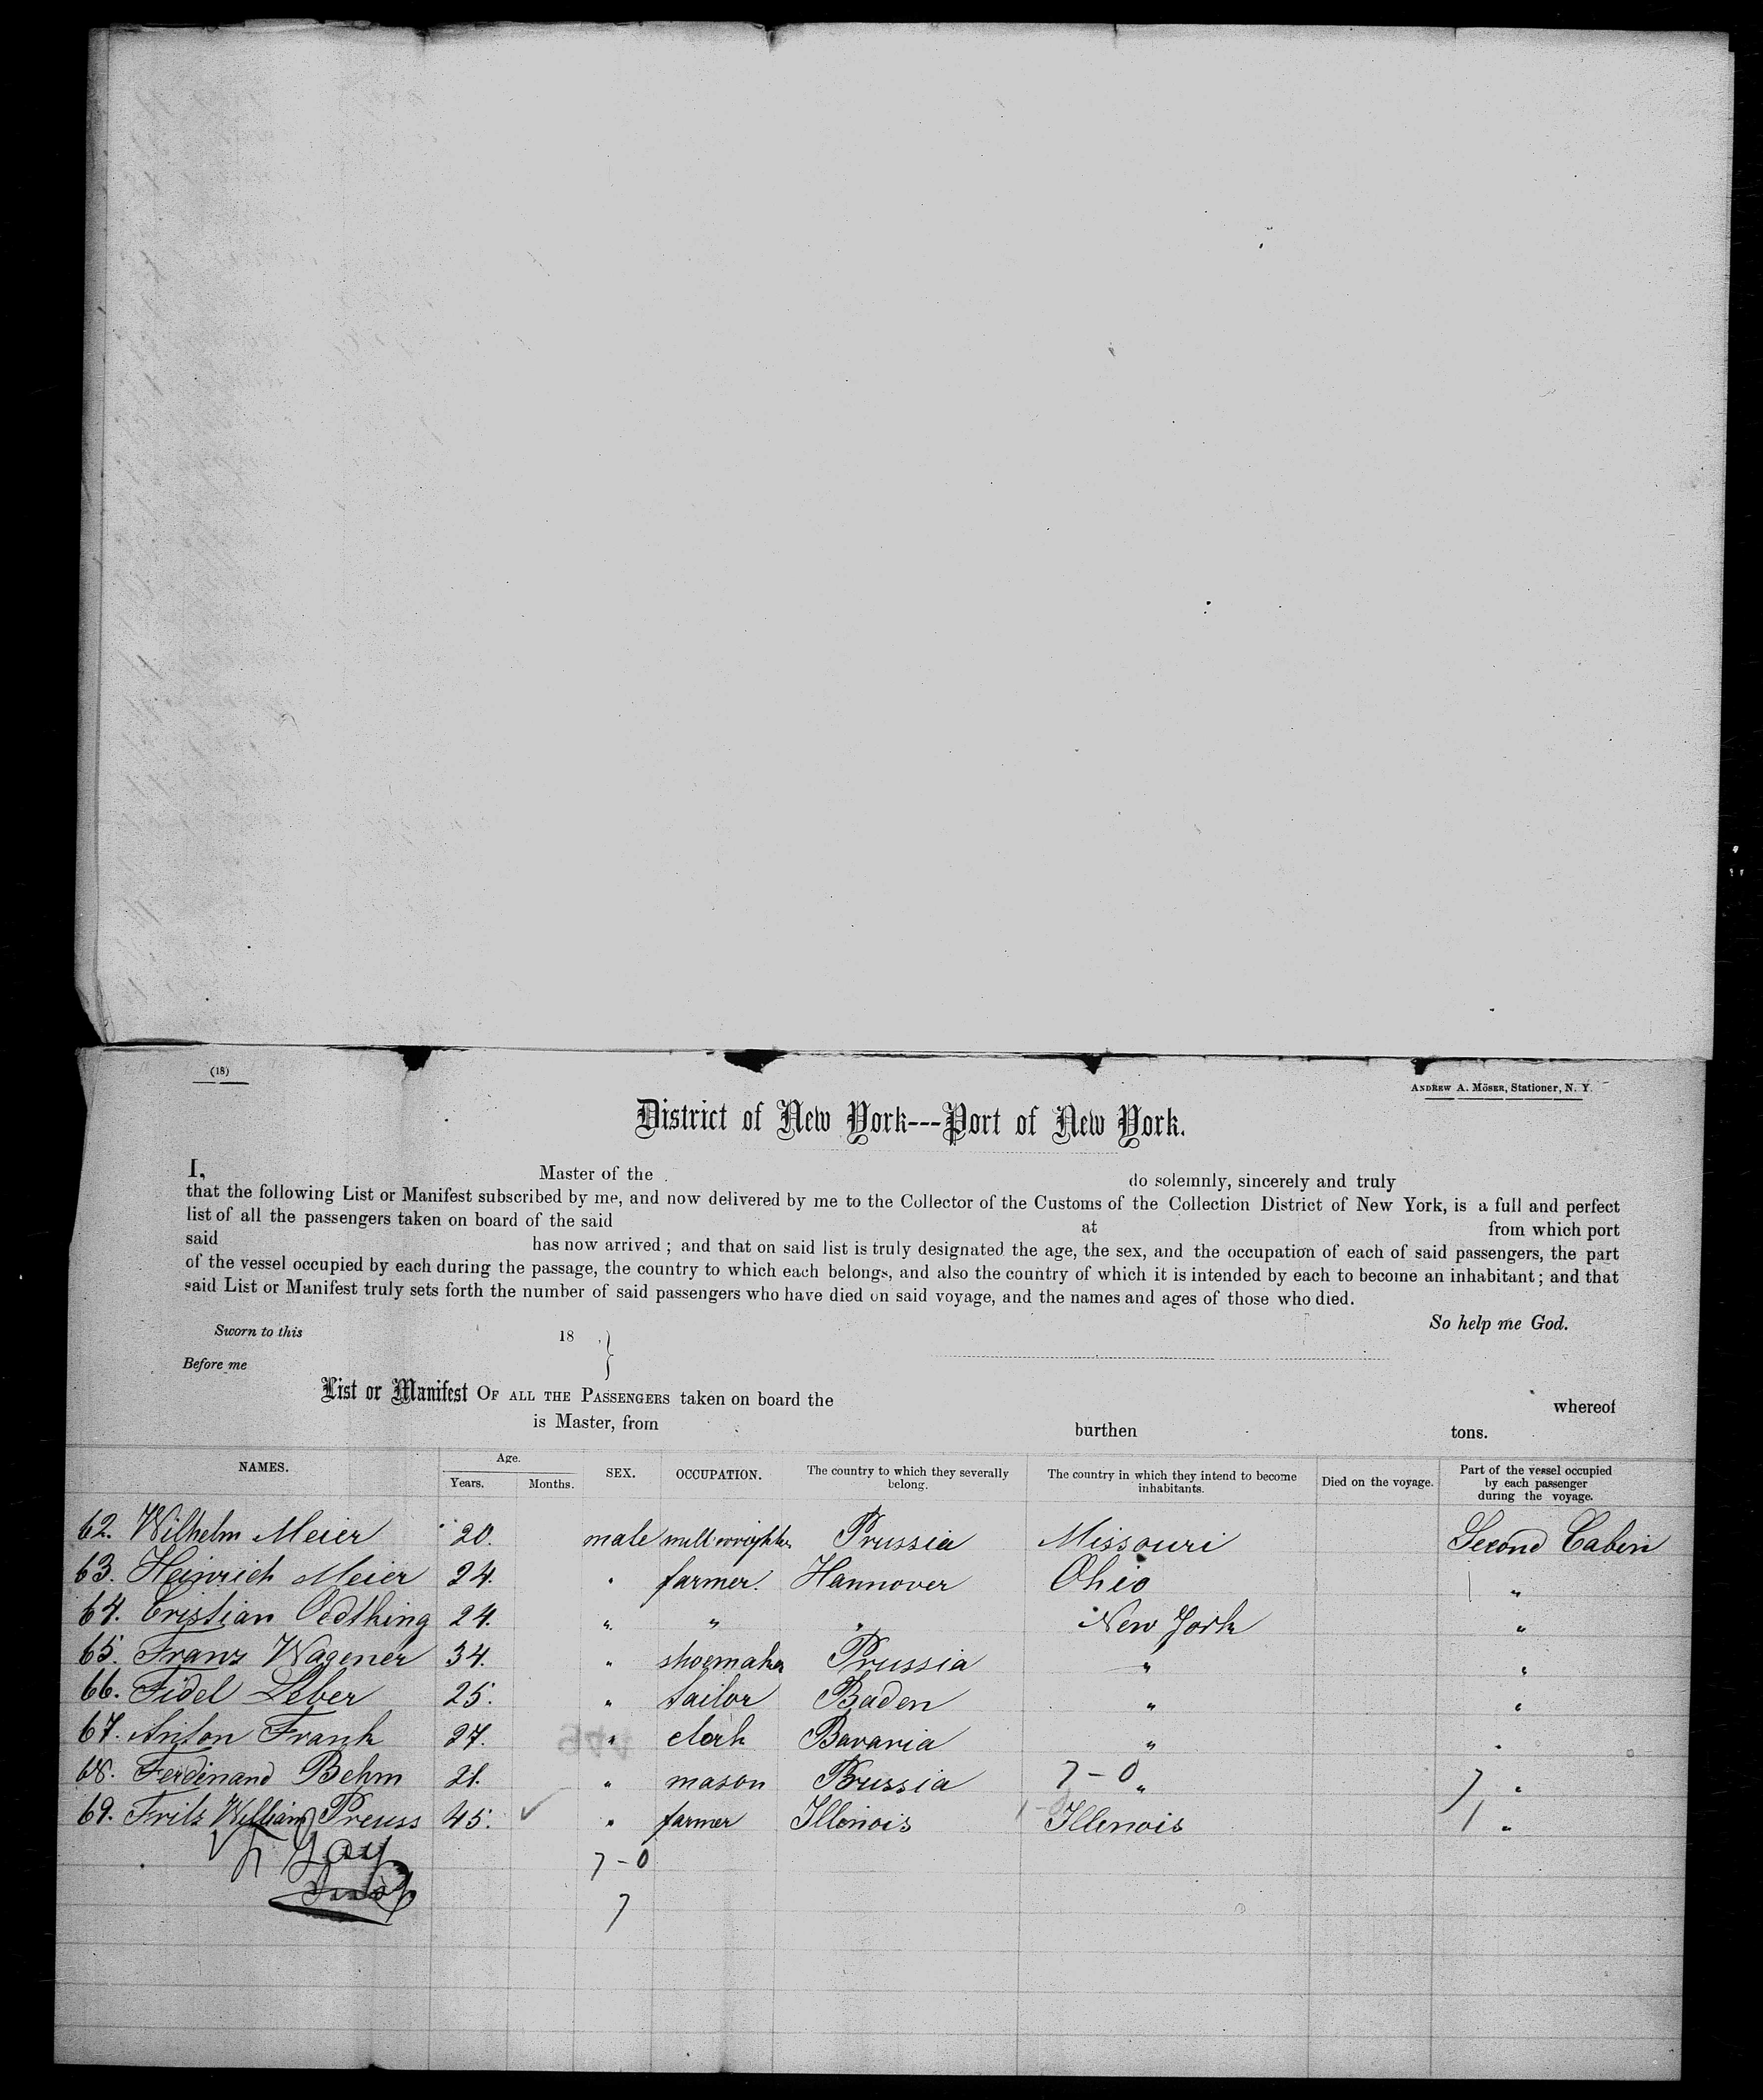 (18)
ANDREW A. MÖSER, Stationer, N. Y.
District of New York---Port of New York.
I, Master of the do solemnly, sincerely and truly
that the following List or Manifest subscribed by me, and now delivered by me to the Collector of the Customs of the Collection District of New York, is a full and perfect
list of all the passengers taken on board of the said at from which port
said has now arrived; and that on said list is truly designated the age, the sex, and the occupation of each of said passengers, the part
of the vessel occupied by each during the passage, the country to which each belongs, and also the country of which it is intended by each to become an inhabitant; and that
said List or Manifest truly sets forth the number of said passengers who have died on said voyage, and the names and ages of those who died.
So help me God.
Sworn to this 18
Before me
List or Manifest OF ALL THE PASSENGERS taken on board the whereof
is Master, from burthen tons.
NAMES. Age. Years. Months. SEX. OCCUPATION. The country to which they severally belong. The country in which they intend to become inhabitants. Died on the voyage. Part of the vessel occupied by each passenger during the voyage.
62. Wilhelm Meier 20. male Prussia Missouri Second Cabin
63. Heinrich Meier 24. " farmer. Hannover Ohio "
64. Cristian Oedthing 24. " " " New York "
65. Franz Wagener 34. " shoemaker Prussia " "
66. Fidel Leber 25. " tailor Baden " "
67. Anton Frank 27. " clerk Bavaria " "
68. Ferdinand Behm 21. " mason Prussia 7-0 " 7 "
69. Fritz William Preuss 45. ✓ " farmer Illinois Illinois 1 "
7-0
7